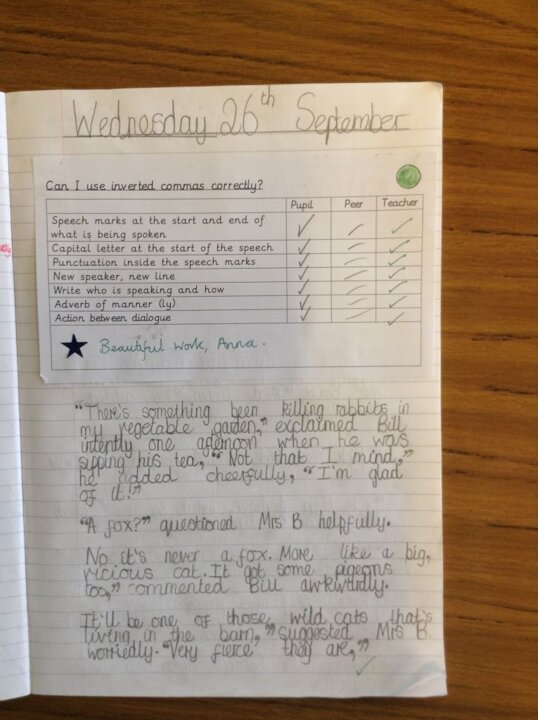 Wednesday 26th September
Can I use inverted commas correctly?
Pupil Peer Teacher
Speech marks at the start and end of
what is being spoken
Capital letter at the start of the speech
Punctuation inside the speech marks
New speaker, new line
Write who is speaking and how
Adverb of manner (ly)
Action between dialogue
Beautiful work, Anna.
"There's something been killing rabbits in
my vegetable garden," exclaimed Bill
intently one afernoon when he was
sipping his tea, "Not that I mind,"
he added cheerfully, "I'm glad
of it!"
"A fox?" questioned Mrs B helpfully.
No it's never a fox. More like a big,
vicious cat. It got some pigeons
too," commented Bill awkwardly.
It'll be one of those wild cats that's
living in the barn," suggested Mrs B
worriedly. "Very fierce they are,"